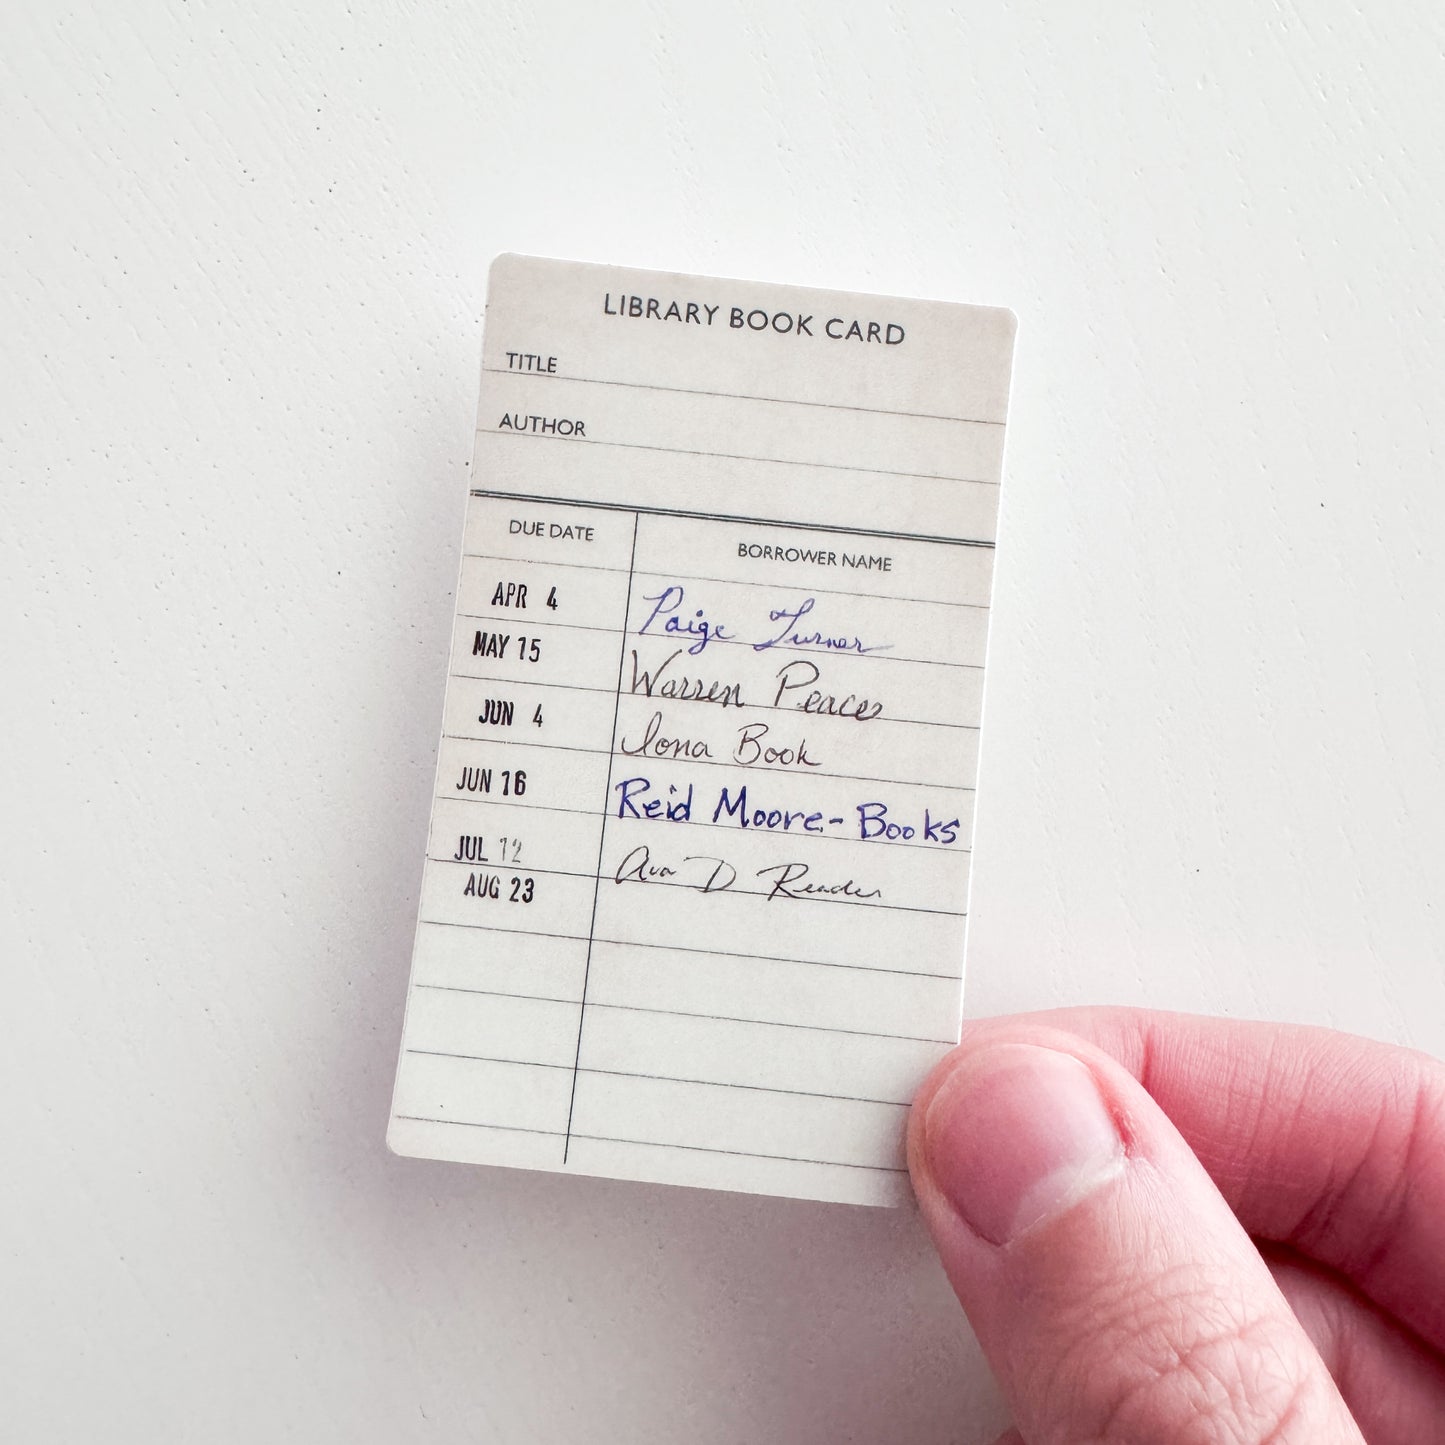 LIBRARY BOOK CARD
TITLE
AUTHOR
DUE DATE BORROWER NAME
APR 4 Paige Turner
MAY 15 Warren Peace
JUN 4 Iona Book
JUN 16 Reid Moore-Books
JUL 12 Ava D Reader
AUG 23